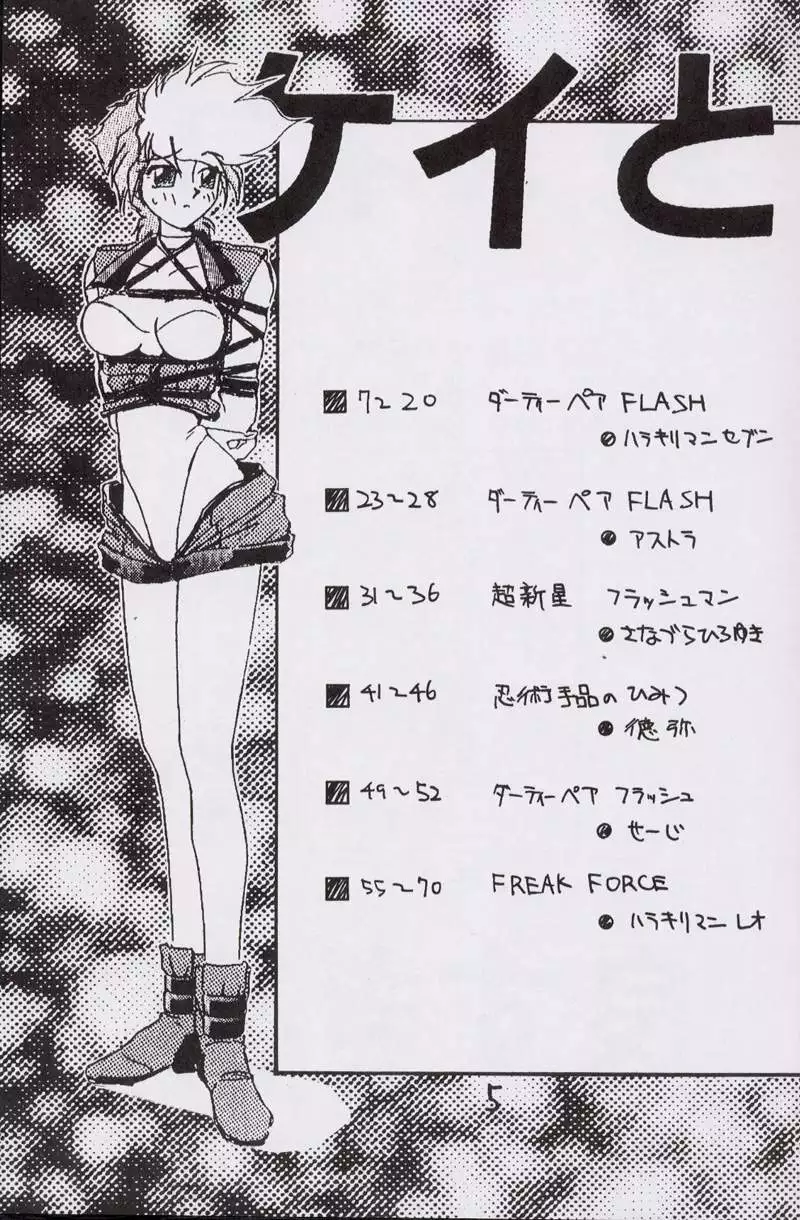 ケイと
7~20 ダーティーペア FLASH
ハラキリマンセブン
23~28 ダーティーペア FLASH
アストラ
31~36 超新星 フラッシュマン
さなづらひろゆき
41~46 忍術手品のひみつ
徳弥
49~52 ダーティーペア フラッシュ
せーじ
55~70 FREAK FORCE
ハラキリマンレオ
5